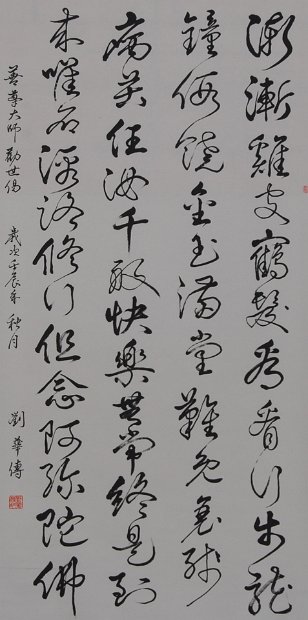 漸漸雞皮鶴髮看看行步龍
鐘假饒金玉滿堂難免衰殘
病苦任汝千般快樂無常終是到
来唯有徑路修行但念阿弥陀佛
善導大師勸世偈 歲次壬辰年秋月 劉華傳